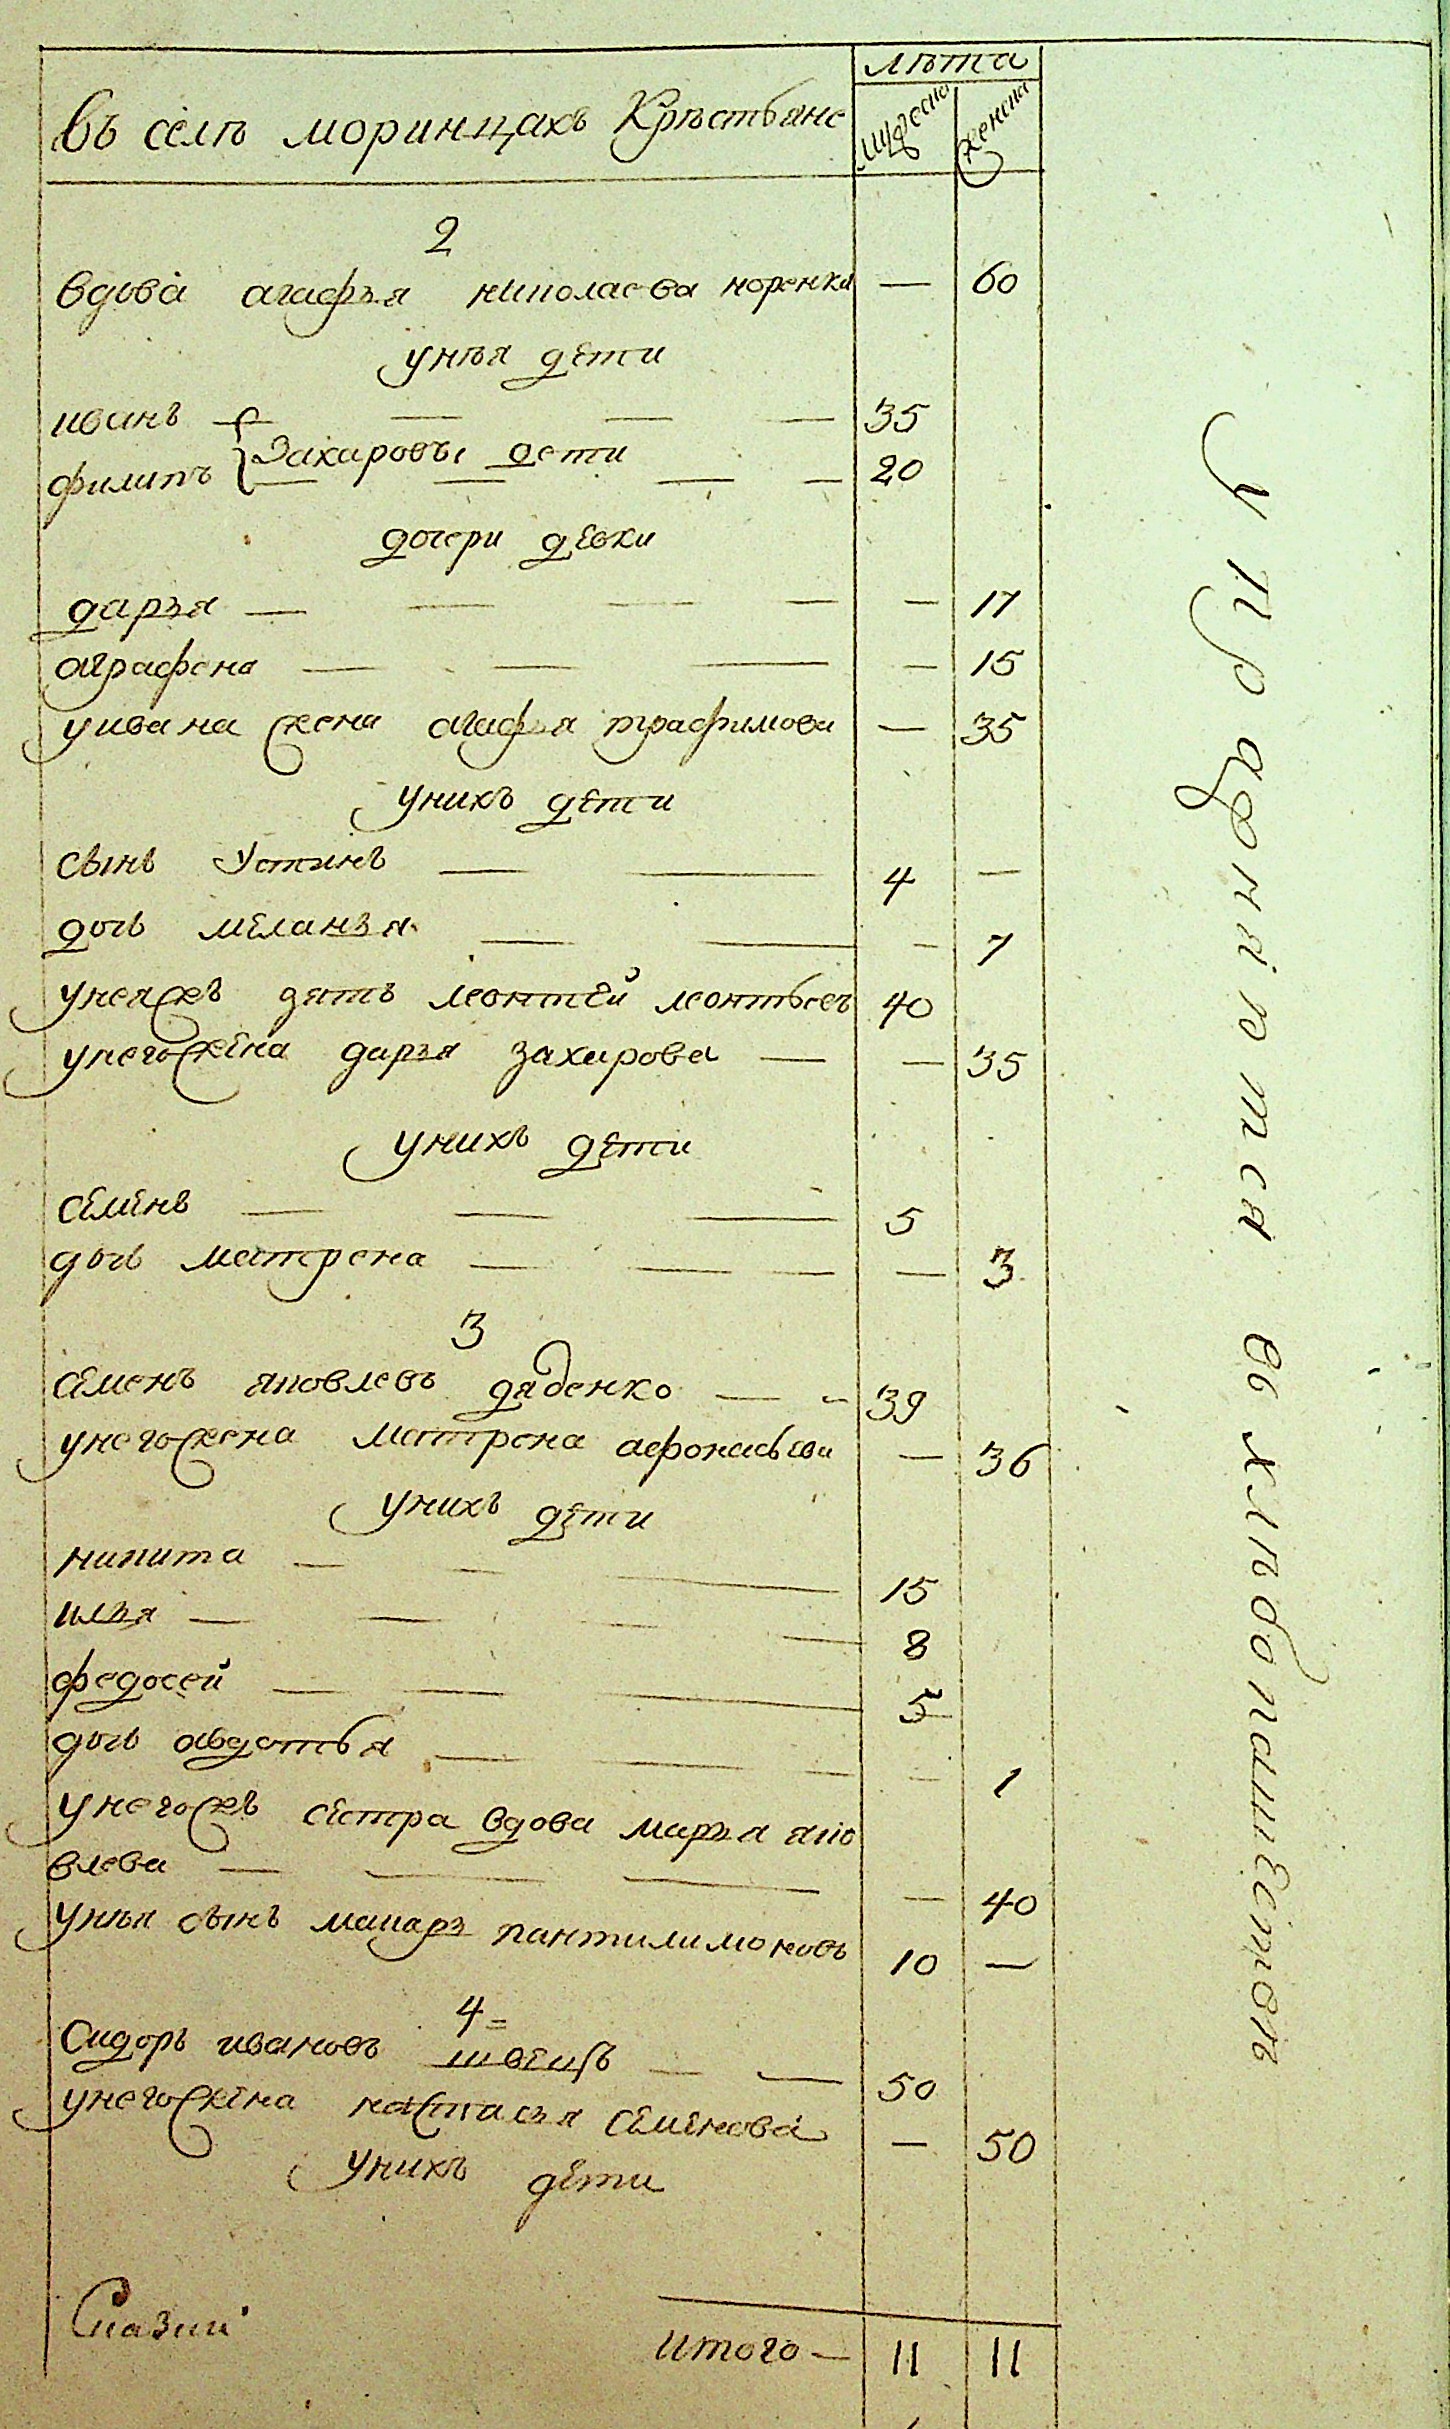 лѣта
въ селѣ моринцахъ Крѣстьяне
мужеска
женска
2
вдова агафья николаева норенка — 60
унѣя дети
иванъ — — — — 35
Захаровы дети
филипъ — — — — 20
дочери девки
дарья — — — — — 17
аграфена — — — — 15
уивана жена агафья трафимова — 35
унихъ дети
сынъ Устинъ — — 4 —
дочь меланья — — — 7
унеяжъ зять леонтей леонтьевъ 40
унегожена дарья захарова — — 35
унихъ дети
семенъ — — — 5
дочь матрена — — — — 3
3
семенъ яковлевъ дяденко — — 39
унегожена матрена афонасьева — 36
унихъ дети
никита — — — 15
илья — — — 8
федосей — — — 5
дочь авдотья — — — — 1
унегожъ сестра вдова марья яко
влева — — — — 40
унѣя сынъ макаръ пантилимоновъ 10 —
4
Сидоръ ивановъ швецъ — — 50
унегожена настасья семенова — 50
унихъ дети
итого — 11 11
упражняется въ хлѣбопашествѣ